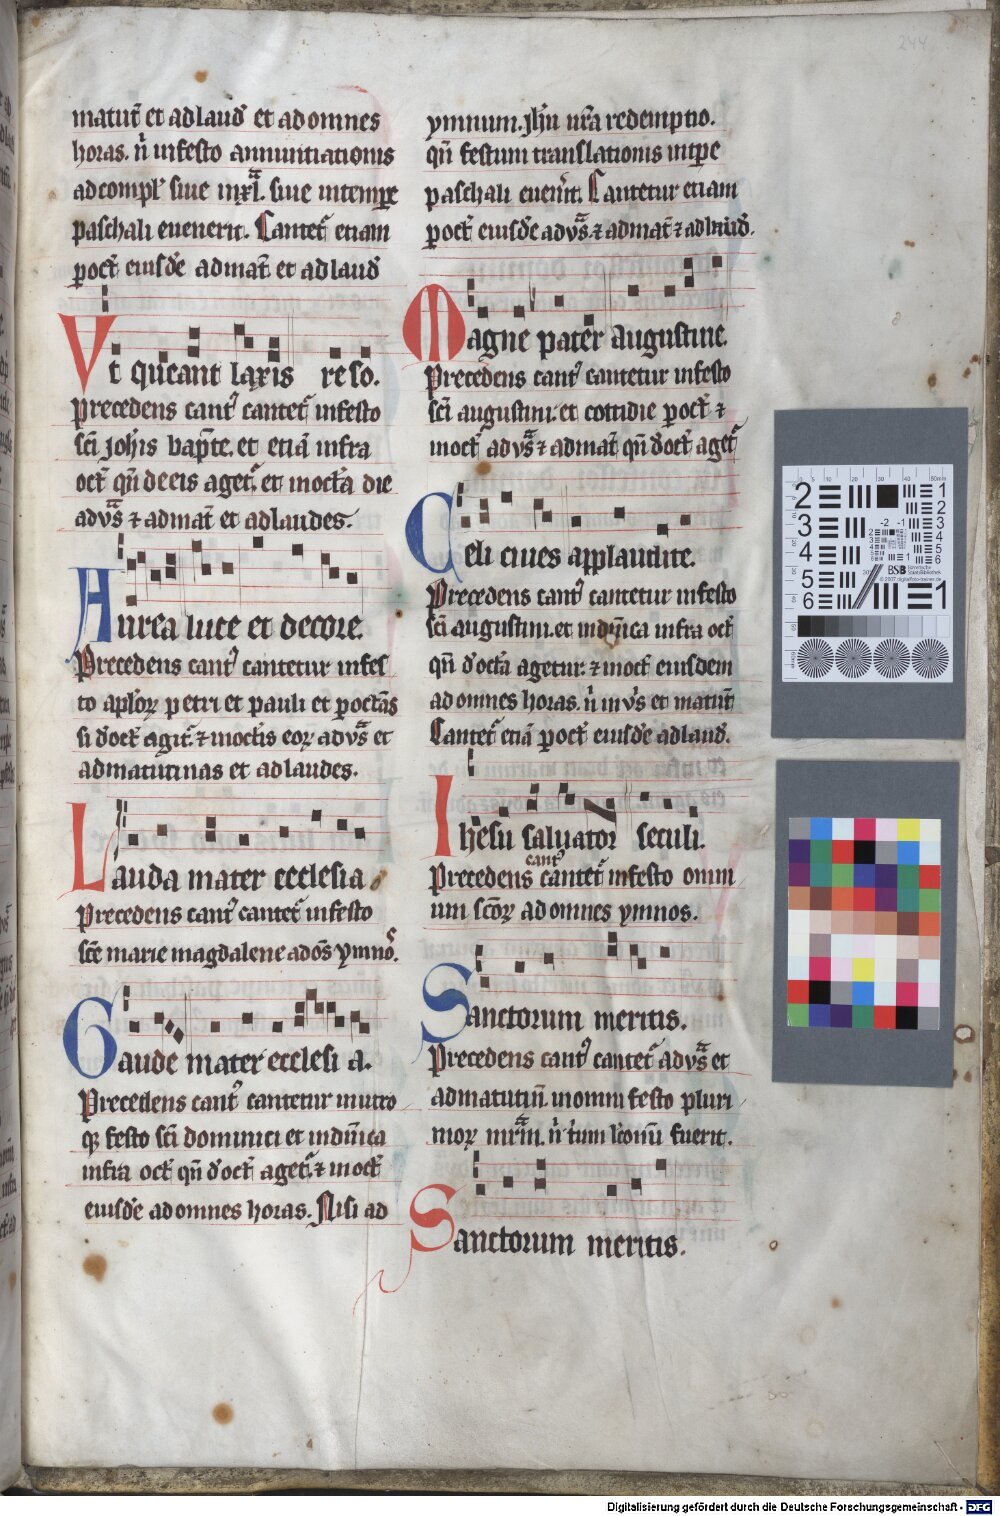 matut̄ et ad laud̄ et ad omnes
horas. n̄ in festo annuntiationis
ad compl̄ siue in xl̄. siue in temp̄e
paschali euenerit. Cantet᷑ etiam
p oct̄ eiusdē ad mat̄ et ad laud̄
Vt queant laxis reso.
Precedens cant᷒ cantet᷑ in festo
sc̄i ioh̄is bap̄te. et etiā infra
oct̄ qn̄ de eis aget᷑. et in oct̄a die
ad vs̄as ⁊ ad mat̄ et ad laudes.
Aurea luce et decore.
Precedens cant᷒ cantetur in fes
to ap̄loꝝ petri et pauli et p octās
si d̄ oct̄ agit᷑. ⁊ in oct̄is eoꝝ ad vs̄as et
ad matutinas et ad laudes.
Lauda mater ecclesia
Precedens cant᷒ cantet᷑ in festo
sc̄e marie magdalene ad oēs ymnos.
Gaude mater ecclesi a.
Precedens cant᷒ cantetur in utro
qꝫ festo sc̄i dominici et in dn̄ica
infra oct̄ qn̄ d̄ oct̄ aget᷑. ⁊ in oct̄
eiusdē ad omnes horas. Nisi ad
ymnum. Jhu nr̄a redemptio.
qn̄ festum translationis in tp̄e
paschali euen̄it. Cantetur etiam
p oct̄ eiusdē ad vs̄as. ⁊ ad mat̄ ⁊ ad laud̄.
Magne pater augustine.
Precedens cant᷒ cantetur in festo
sc̄i augustini. et cottidie p oct̄ ⁊
in oct̄ ad vs̄as ⁊ ad mat̄ qn̄ d̄ oct̄ aget᷑
Celi ciues applaudite.
Precedens cant᷒ cantetur in festo
sc̄i augustini. et in dn̄ica infra oct̄
qn̄ d̄ oct̄a agetur. ⁊ in oct̄ eiusdem
ad omnes horas. n̄ in vs̄ et matut̄
Cantet᷑ etiā p oct̄ eiusdē ad laud̄.
Ihesu saluator seculi.
cant᷒
Precedens cantet᷑ in festo omni
um sc̄oꝝ ad omnes ymnos.
Sanctorum meritis.
Precedens cant᷒ cantet᷑ ad vs̄as et
ad matutin̄ in omni festo pluri
moꝝ mr̄m. n̄ trium lc̄onū fuerit.
Sanctorum meritis.
244
Digitalisierung gefördert durch die Deutsche Forschungsgemeinschaft - DFG